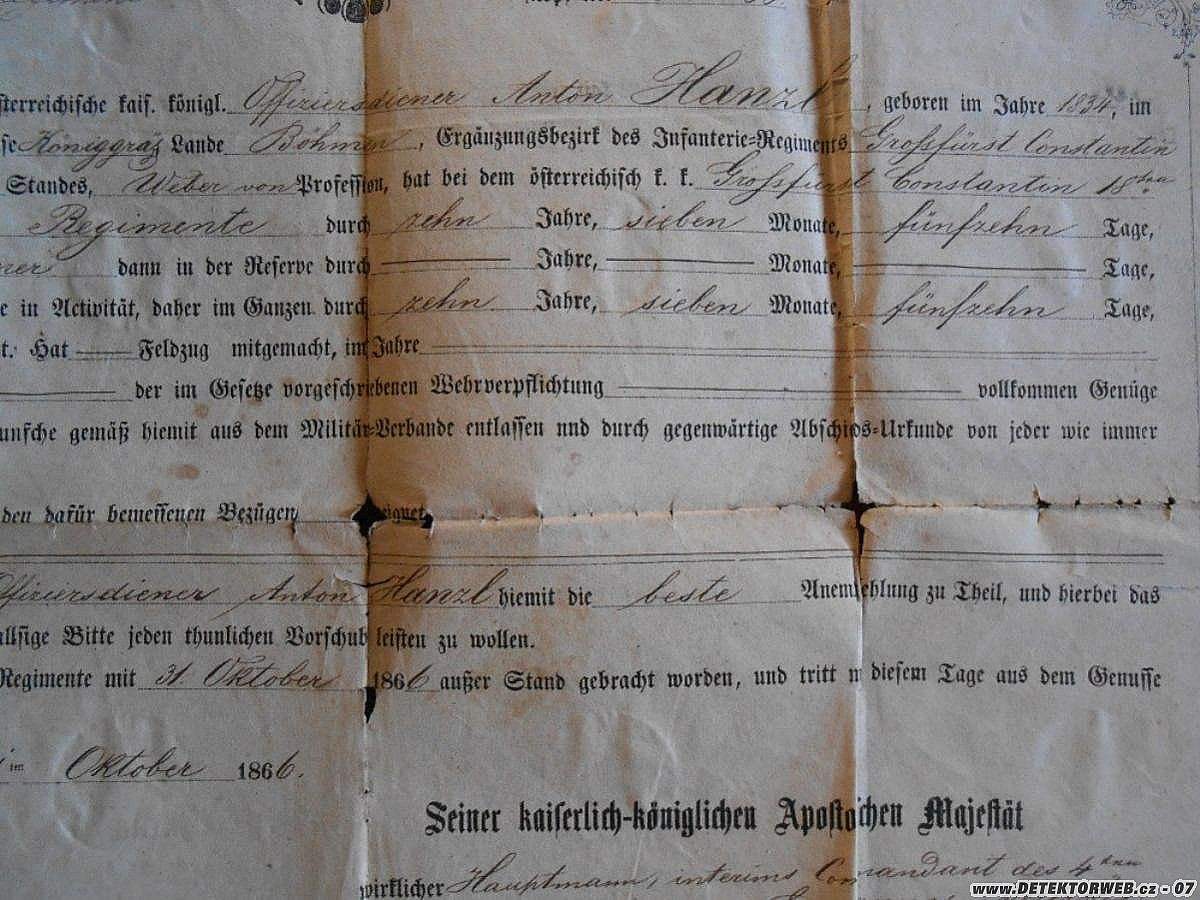 sterreichische kais. königl. Offiziersdiener Anton Hanzl, geboren im Jahre 1834, im
se Königgräz Lande Böhmen, Ergänzungsbezirk des Infanterie-Regiments Grossfürst Constantin
Standes, Weber von Profession, hat bei dem österreichisch k. k. Grossfürst Constantin 18ten
Regimente durch zehn Jahre, sieben Monate, fünfzehn Tage,
ner dann in der Reserve durch Jahre, Monate, Tage,
e in Activität, daher im Ganzen durch zehn Jahre, sieben Monate, fünfzehn Tage,
t. Hat Feldzug mitgemacht, im Jahre
der im Gesetze vorgeschriebenen Wehrverpflichtung vollkommen Genüge
unsche gemäß hiemit aus dem Militär-Verbande entlassen nnd durch gegenwärtige Abschids-Urkunde von jeder wie immer
den dafür bemessenen Bezügen eignet.
ffiziersdiener Anton Hanzl hiemit die beste Anempfehlung zu Theil, und hierbei das
allsige Bitte jeden thunlichen Vorschub leisten zu wollen.
Regimente mit 31. Oktober 1866 außer Stand gebracht worden, und tritt m diesem Tage aus dem Genusse
im Oktober 1866.
Seiner kaiserlich-königlichen Aposto chen Majestät
wirklicher Hauptmann, interims Comandant des 4ten
www.DETEKTORWEB.cz - 07